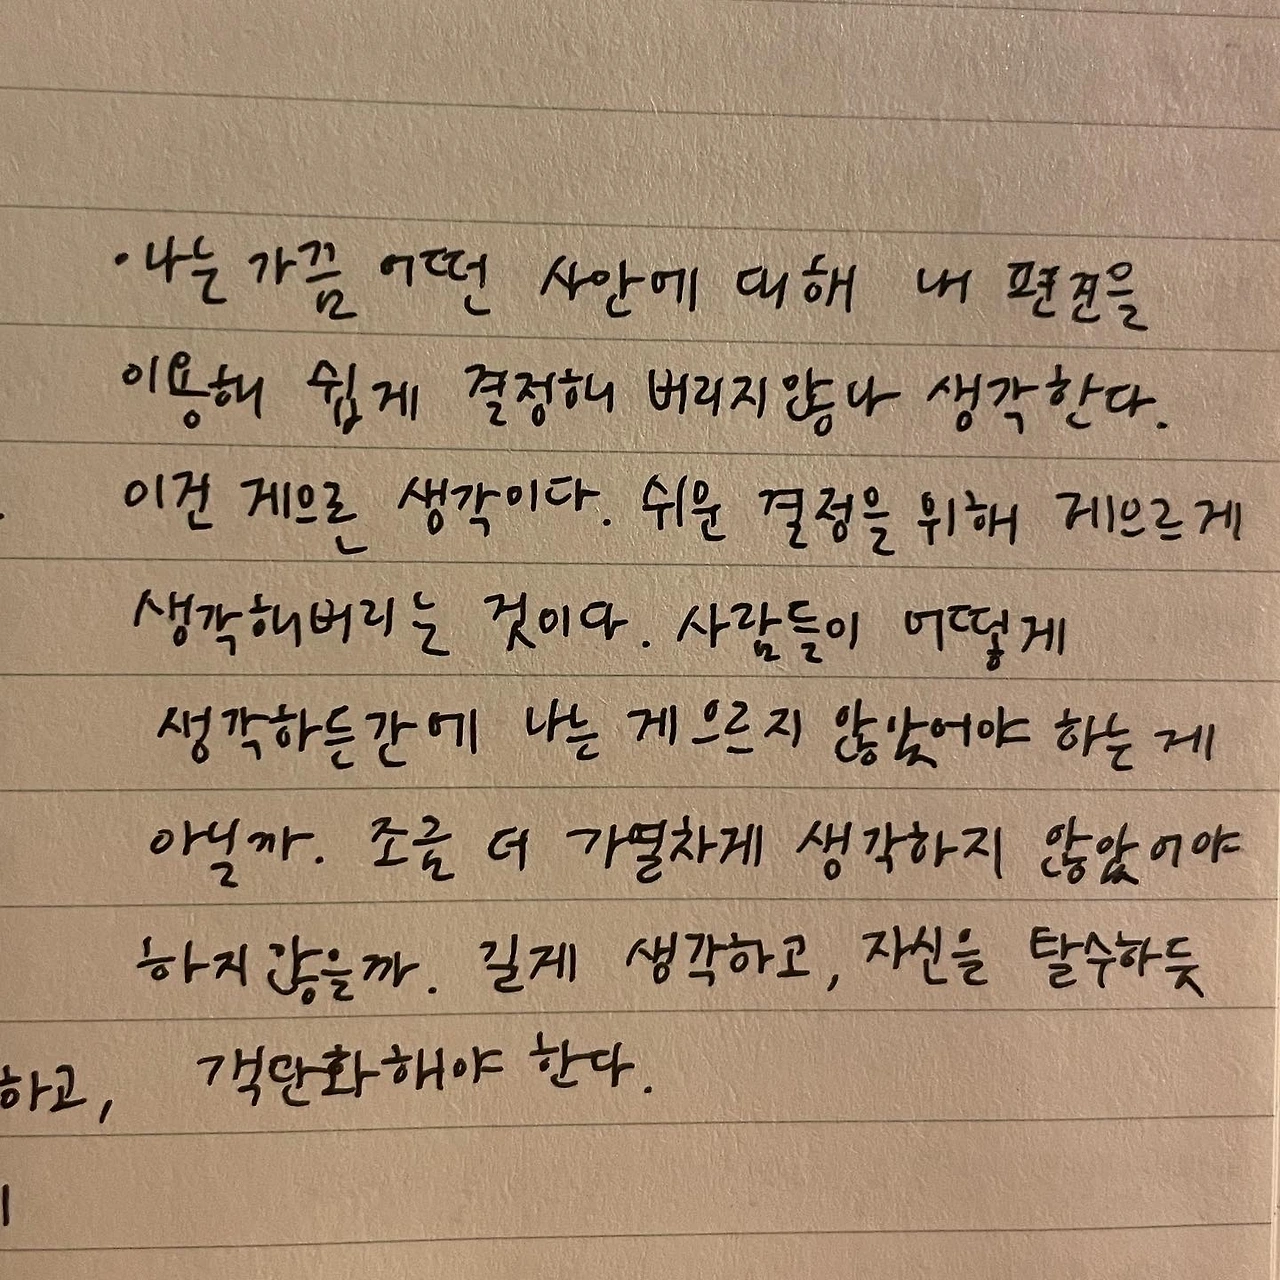 · 나는 가끔 어떤 사안에 대해 내 편견을
이용해 쉽게 결정해 버리지않나 생각한다.
이건 게으른 생각이다. 쉬운 결정을 위해 게으르게
생각해버리는 것이다. 사람들이 어떻게
생각하든간에 나는 게으르지 않았어야 하는게
아닐까. 조금 더 가열차게 생각하지 않았어야
하지않을까. 길게 생각하고, 자신을 탈수하듯
하고, 객단화해야 한다.